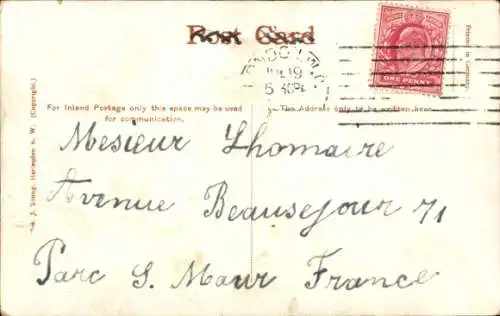 Post Card
LONDON, W.C.
JUL 19
5
ONE PENNY
Printed in Germany.
For Inland Postage only this space may be used
for communication.
The Address only to be written here.
J. Young, Harlesden N. W. (Copyright.)
Mesieur Lhomaire
Avenue Beausejour 71
Parc S. Maur France